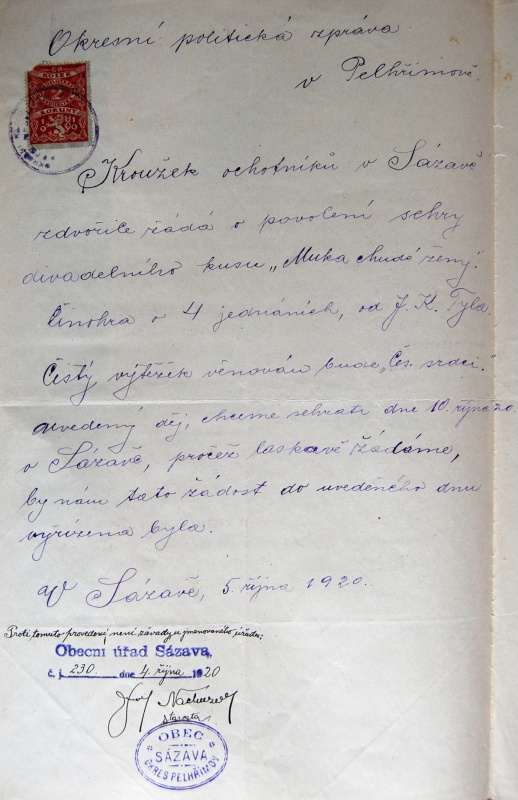 Okresní politická zpráva
v Pelhřimově.
KOLEK
2
KORUNY
1919
Kroužek ochotníků v Sázavě
zdvořile žádá o povolení sehry
divadelního kusu „Muka chudé ženy".
Činohra o 4 jednáních, od J. K. Tyla
Čistý výtěžek věnován bude „Čes. srdci."
uvedený děj, chceme sehrati dne 10. října 20.
v Sázavě, pročež laskavě žádáme,
by nám tato žádost do uvedeného dnu
vyřízena byla.
V Sázavě, 5. října 1920.
Proti tomuto provedení není závady u jmenovaného úřadu:
Obecní úřad Sázava,
č. j. 230 dne 4. října 1920
starosta
OBEC
SÁZAVA
OKRES PELHŘIMOV